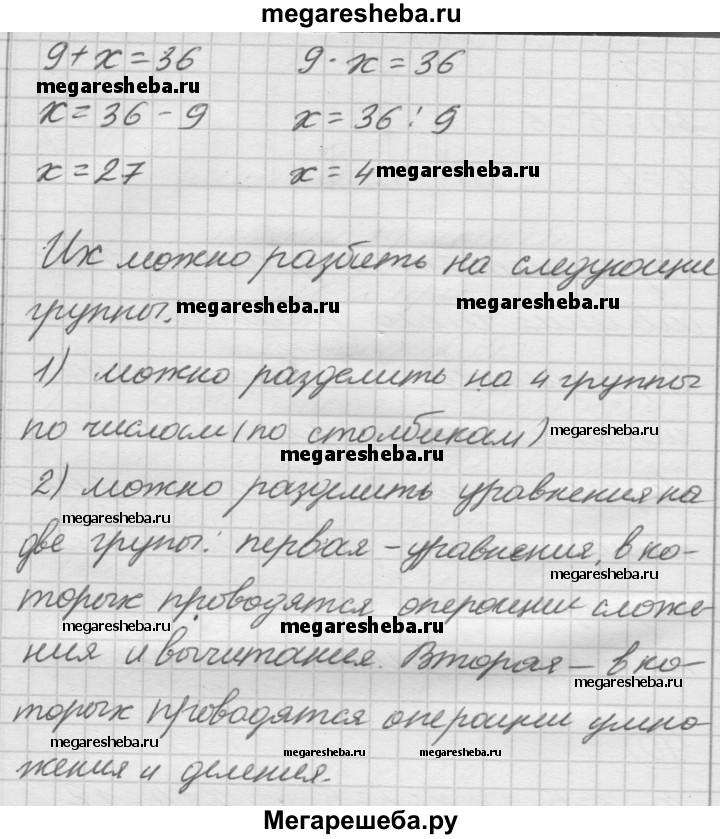 megaresheba.ru
9 + x = 36 9 · x = 36
megaresheba.ru
x = 36 - 9 x = 36 : 9
x = 27 x = 4 megaresheba.ru
Их можно разбить на следующие
группы. megaresheba.ru megaresheba.ru
1) можно разделить на 4 группы
по числам (по столбикам) megaresheba.ru
megaresheba.ru
2) можно разделить уравнения на
megaresheba.ru
две групы: первая – уравнения, в ко-
megaresheba.ru
торых проводятся операции сложе
megaresheba.ru megaresheba.ru
ния и вычитания. Вторая – в ко-
megaresheba.ru
торых проводятся операции умно
megaresheba.ru megaresheba.ru megaresheba.ru
жения и деления.
Мегарешеба.ру